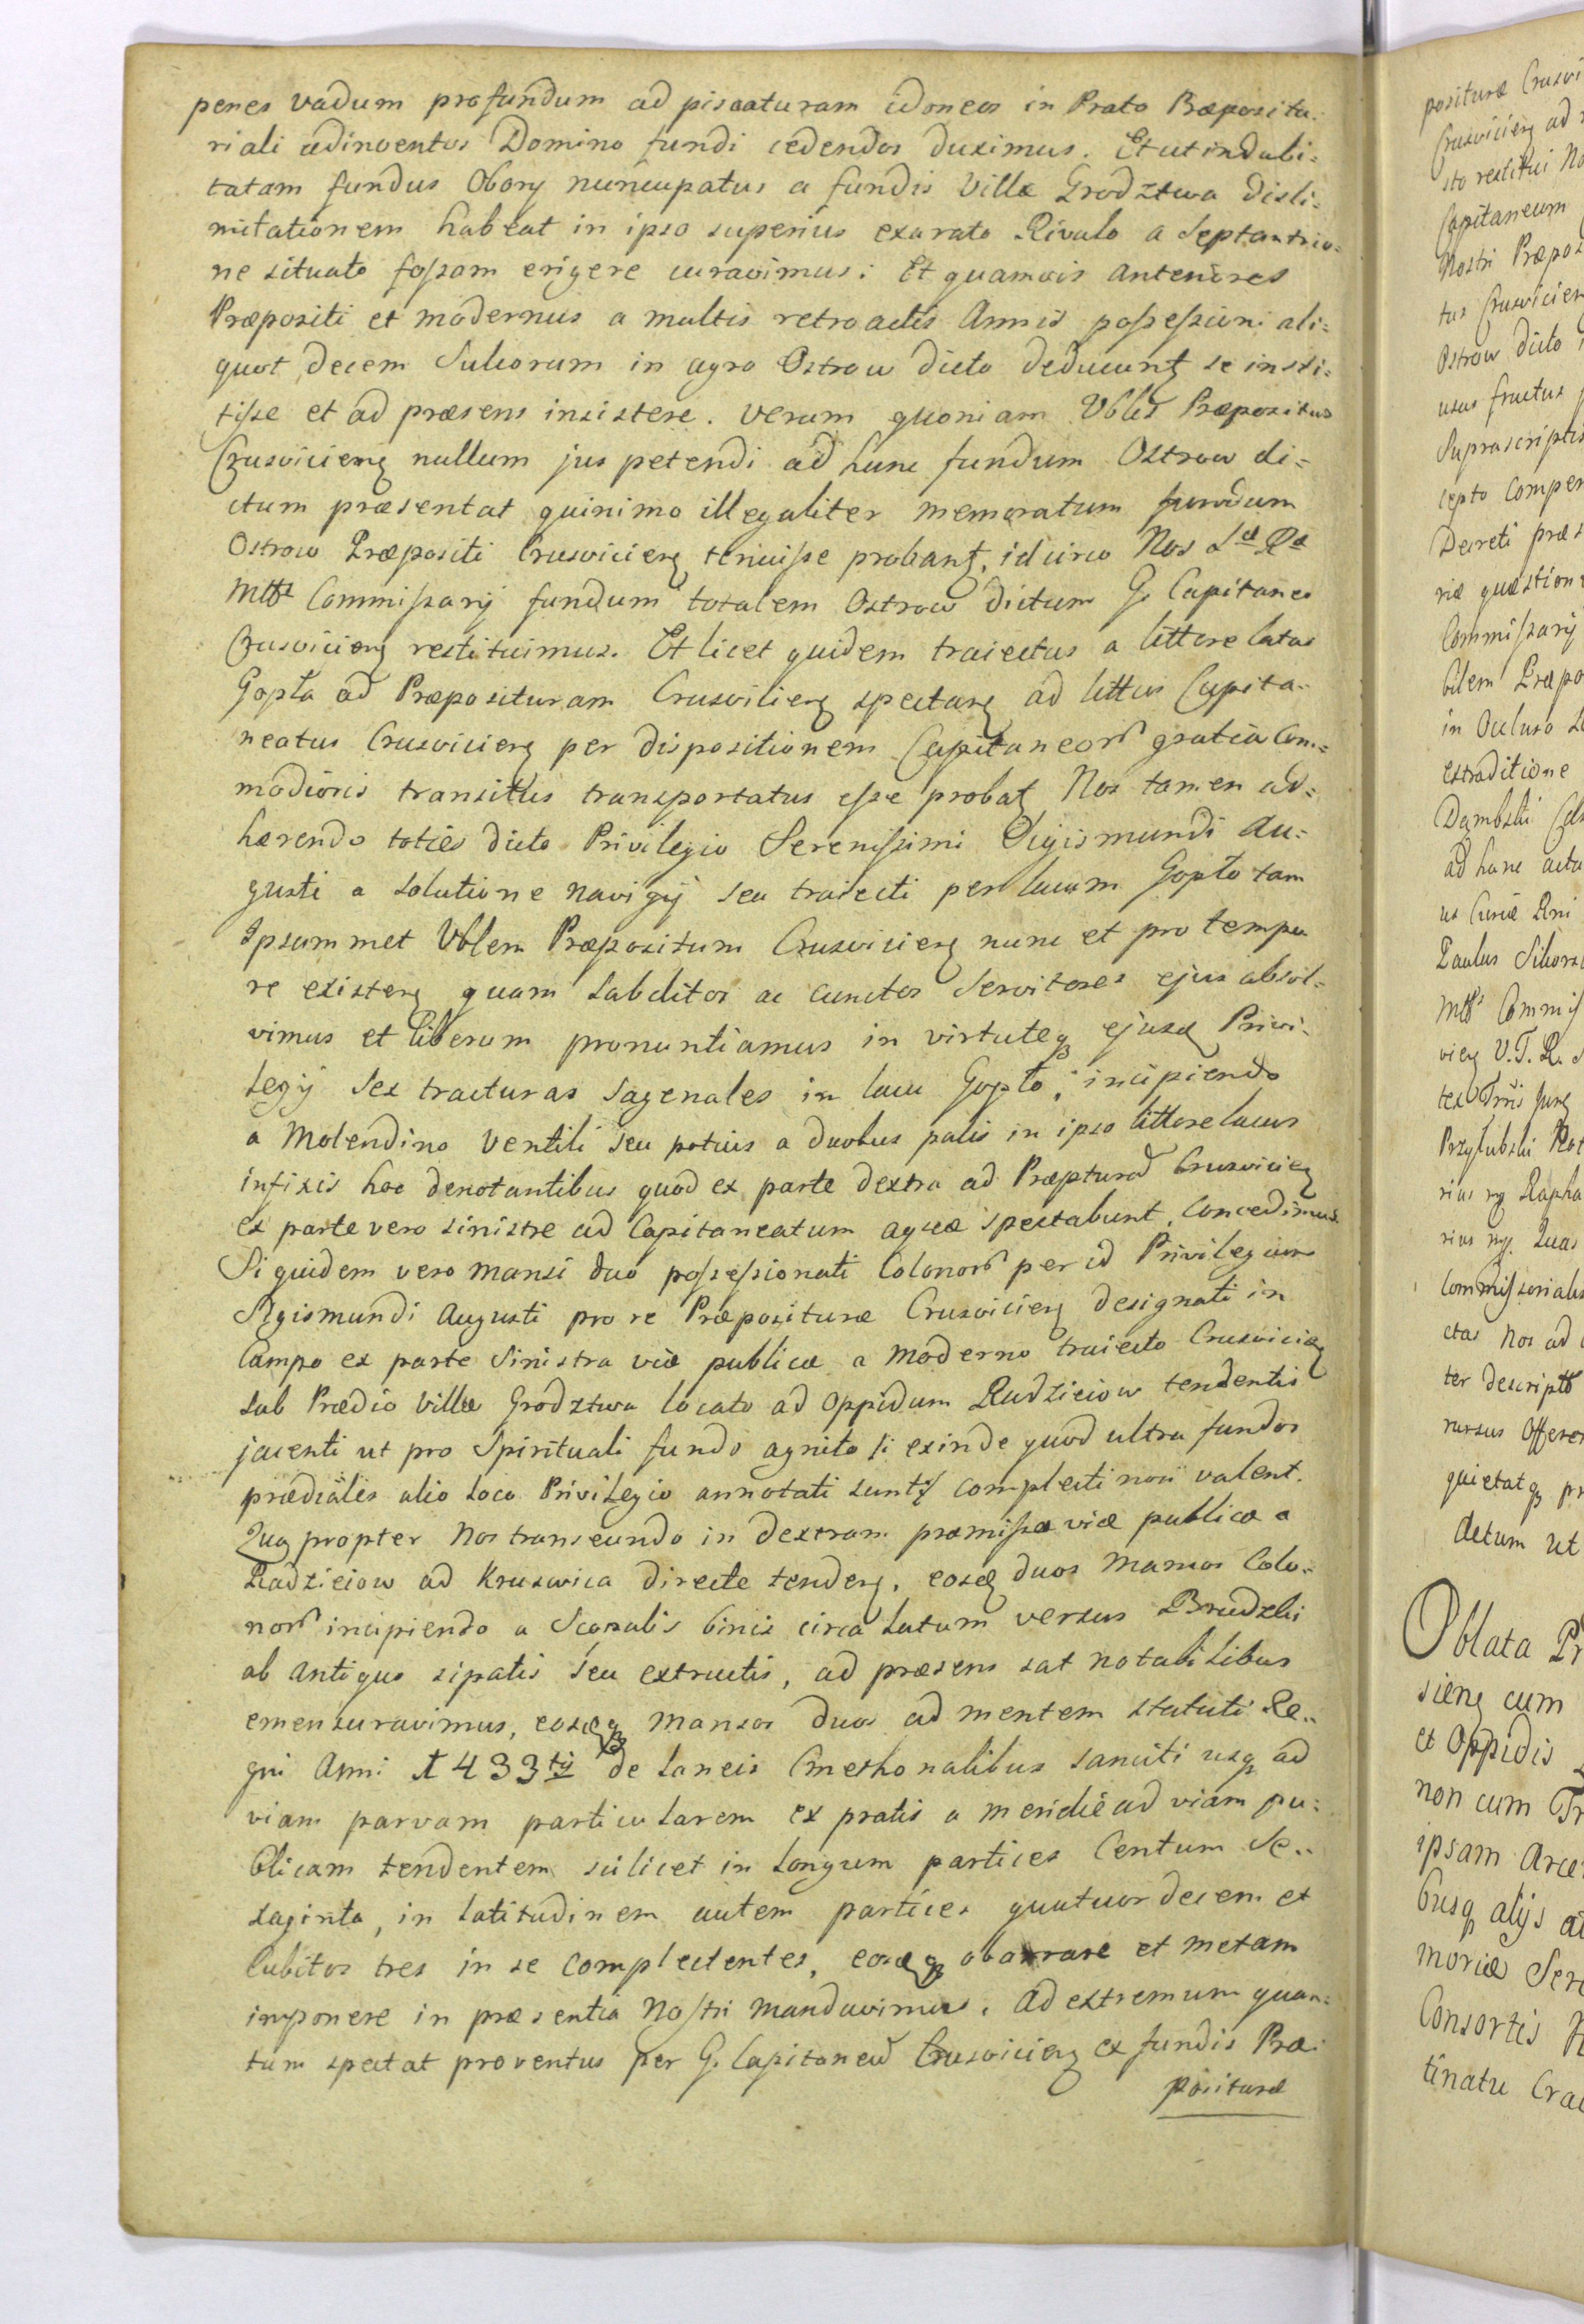 penes vadum profundum ad piscaturam idoneos in Prato Præpositu-
riali adinventos Domino fundi cedendos duximus. Et ut indubi=
tatam fundus Obory nuncupatus a fundis Villæ Grodztwa disli=
mitationem habeat in ipso superius exarato Rivulo a Septantrio=
ne situato fossam erigere curavimus: Et quamvis anteriores
Præpositi et modernus a multis retroactis Annis possessioni ali=
quot decem Sulcorum in agro Ostrow dicto deducunt se insti=
tisse et ad præsens insistere. verum quoniam Vblis Præpositus
Crusviciens nullum jus petendi ad hunc fundum Ostrow di=
ctum præsentat quinimo illegaliter memoratum fundum
Ostrow Præpositi Crusviciens tenuisse probant, idcirco Nos Sæ Ræ
Mttis Commissarij fundum totalem Ostrow dictum G. Capitaneo
Crusviciens restituimus. Et licet quidem traiectus a littore latus
Gopła ad Præposituram Crusviciens spectans ad littus Capita-
neatus Crusviciens per dispositionem Capitaneor gratia Com=
modioris transitus transportatus esse probat Nos tamen ad=
hærendo toties dicto Privilegio Serenissimi Sigismundi Au=
gusti a solutione navigij seu traiecti per lacum Gopło tam
Ipsummet Vblem Præpositum Crusviciens nunc et pro tempo
re existens quam Subditos ac cunctos Servitores ejus absol=
vimus et liberum pronuntiamus in virtuteq ejusd Privi-
legij Sex tracturas sagenales in lacu Gopło, incipiendo
a Molendino Ventili seu potius a duobus palis in ipso littore lacus
infixis hoc denotantibus quod ex parte dextra ad Præpturad Crusviciens
ex parte vero sinistre ad Capitaneatum aquæ spectabunt, Concedimus.
Siquidem vero mansi duo possessionati Colonor per id Privilegium
Sigismundi Augusti pro re Præposituræ Crusviciens designati in
Campo ex parte Sinistra viæ publicæ a moderno traiecto Crusviciens
sub Prædio Villæ Grodztwa locato ad Oppidum Radzieiow tendentis
jacenti ut pro Spirituali fundo agnito si exinde quod ultra fundos
prædiales alio loco Privilegio annotati sunt complecti non valent.
Quapropter Nos transeundo in dextram præmissæ viæ publicæ a
Radzieiow ad Kruswica directe tendens, eosd duos Mansos Colo-
nor incipiendo a Scopulis binis circa lutum versus Brudzki
ab antiquo sipatis seu extructis, ad præsens sat notabilibus
emensuravimus, eosdq mansos duos ad mentem statuti Re-
gni Anni 1433tij de laneis Cmethonalibus sanciti usq ad
viam parvam particularem ex pratis a meridie ad viam pu=
blicam tendentem scilicet in longum partices Centum Se-
xaginta, in latitudinem autem partices quatuordecem et
Cubitos tres in se complectentes, eosdq oborrare et metam
imponere in præsentia Nostri mandavimus. Ad extremum quan=
tum spectat proventus per G. Capitaneu Crusviciens ex fundis Præ-
posituræ
positura Crusvi
Crusviciens ad
sto restitui No
Capitaneum
Nostri Præpos
tus Crusvicien
Ostrow dicto
usus fructus
Suprascriptis
cepto Comper
Decreti præs
riæ quæstion
Commissarij
bilem Præpo
in Ocluso
extraditione
Dąmbski
ad hunc actu
us Curiæ
Paulus Sikors
Mttis Commis
viens V.T.R.
Przyłubski Not
rius
Commissorialis
ctas Nos ad
ter descripto
rursus Offeren
quietatq pr
Actum ut
Oblata Pr
siens cum
et Oppidis
non cum Tr
ipsam Arce
busq alijs
moriæ Sere
Consortis
tinatu Crac